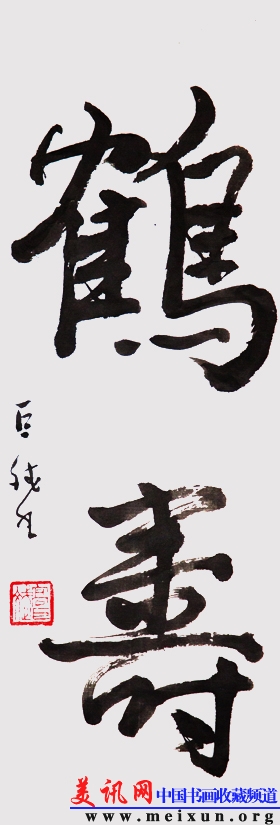 鶴
壽
美讯网 中国书画收藏频道
www.meixun.org